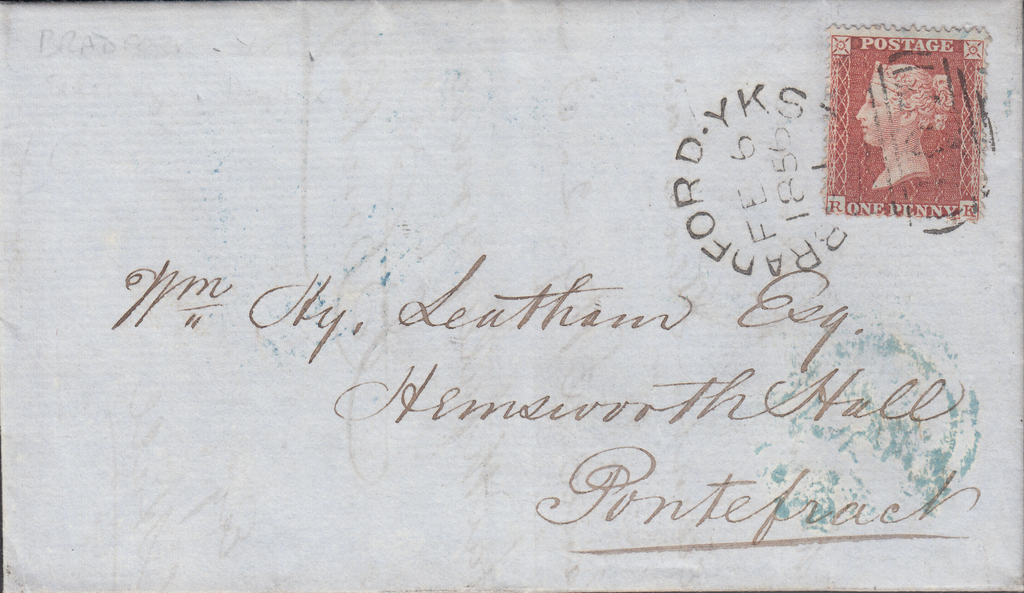 BRADFORD·YK
FE 6
1856
S
POSTAGE
R ONE PENNY K
Wm Hy. Leatham Esq.
Hemsworth Hall
Pontefract